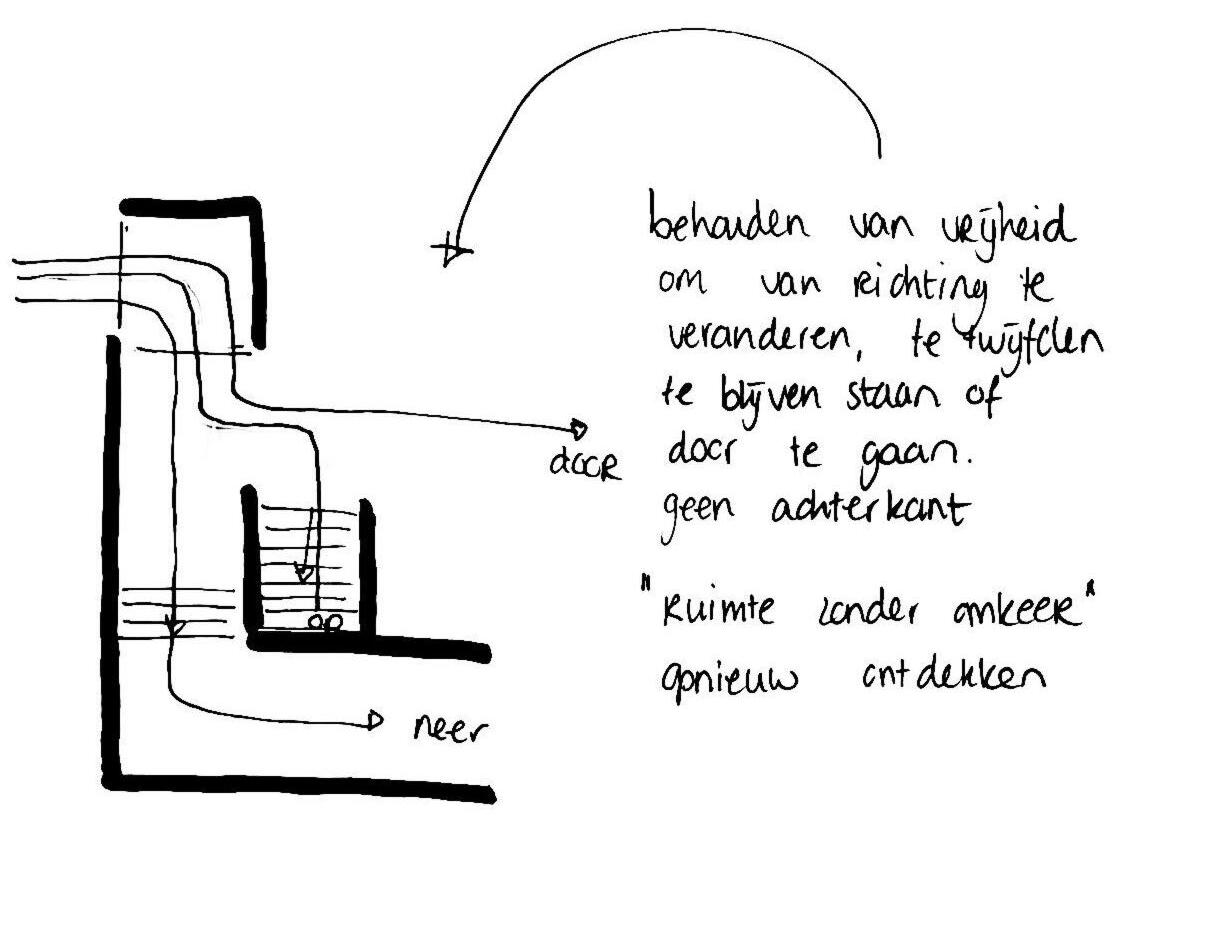 behouden van vrijheid
om van richting te
veranderen, te twijfelen
te blijven staan of
door te gaan.
geen achterkant
"Ruimte zonder omkeer"
opnieuw ontdekken
dooR
op
neer